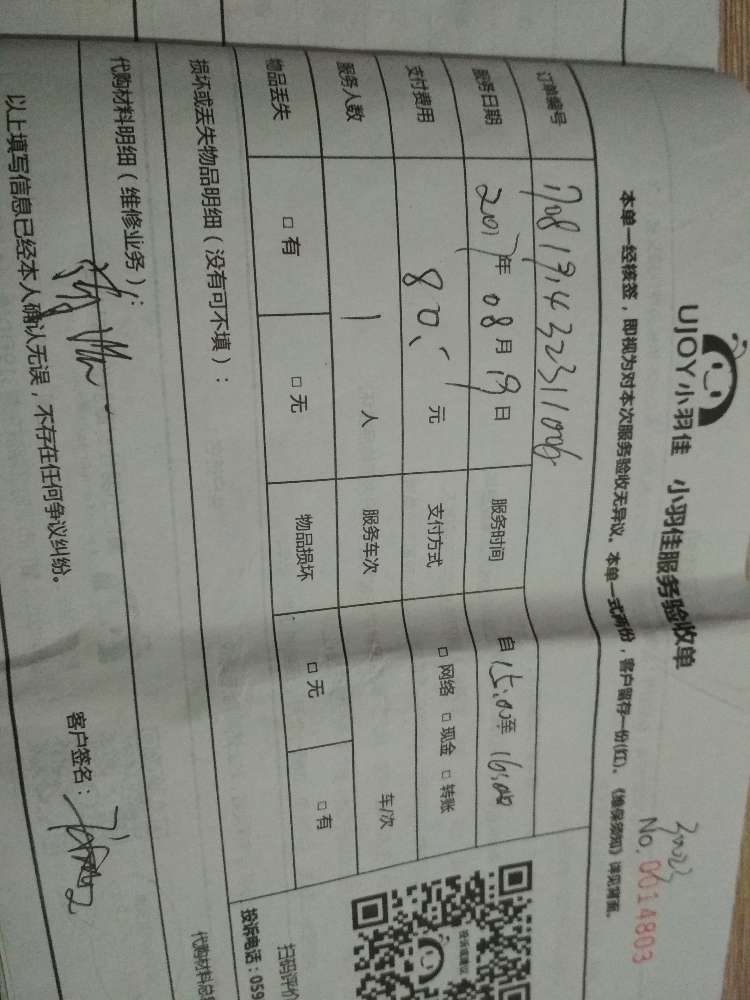 UJOY小羽佳 小羽佳服务验收单
No. 0014803
本单一经核签，即视为对本次服务验收无异议。本单一式两份，客户留存一份(红)。《维保须知》详见背面。
订单编号
服务日期 2017年 08月 19日 服务时间 自 15:00至 16:00
支付费用 80.- 元 支付方式 □ 网络 □ 现金 □ 转账
服务人数 1 人 服务车次 车/次
物品丢失 □ 有 □ 无 物品损坏 □ 无 □ 有
损坏或丢失物品明细（没有可不填）：
扫码评价
投诉电话：059
代购材料明细（维修业务）：
代购材料总
以上填写信息已经本人确认无误，不存在任何争议纠纷。
客户签名：